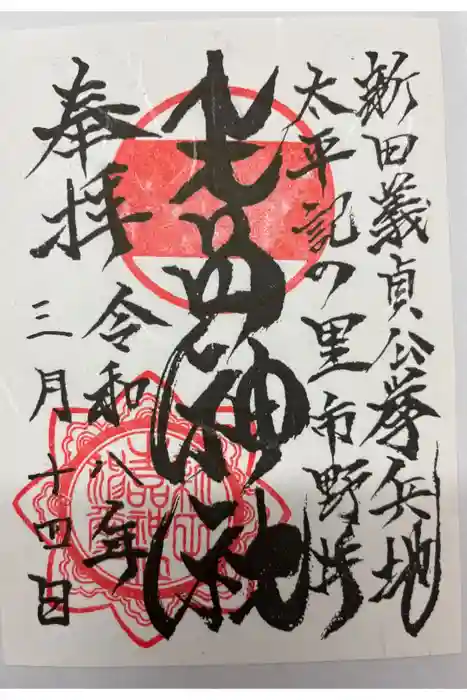 新田義貞公挙兵地
太平記の里市野井
生品神社
奉拝
令和八年
三月十四日